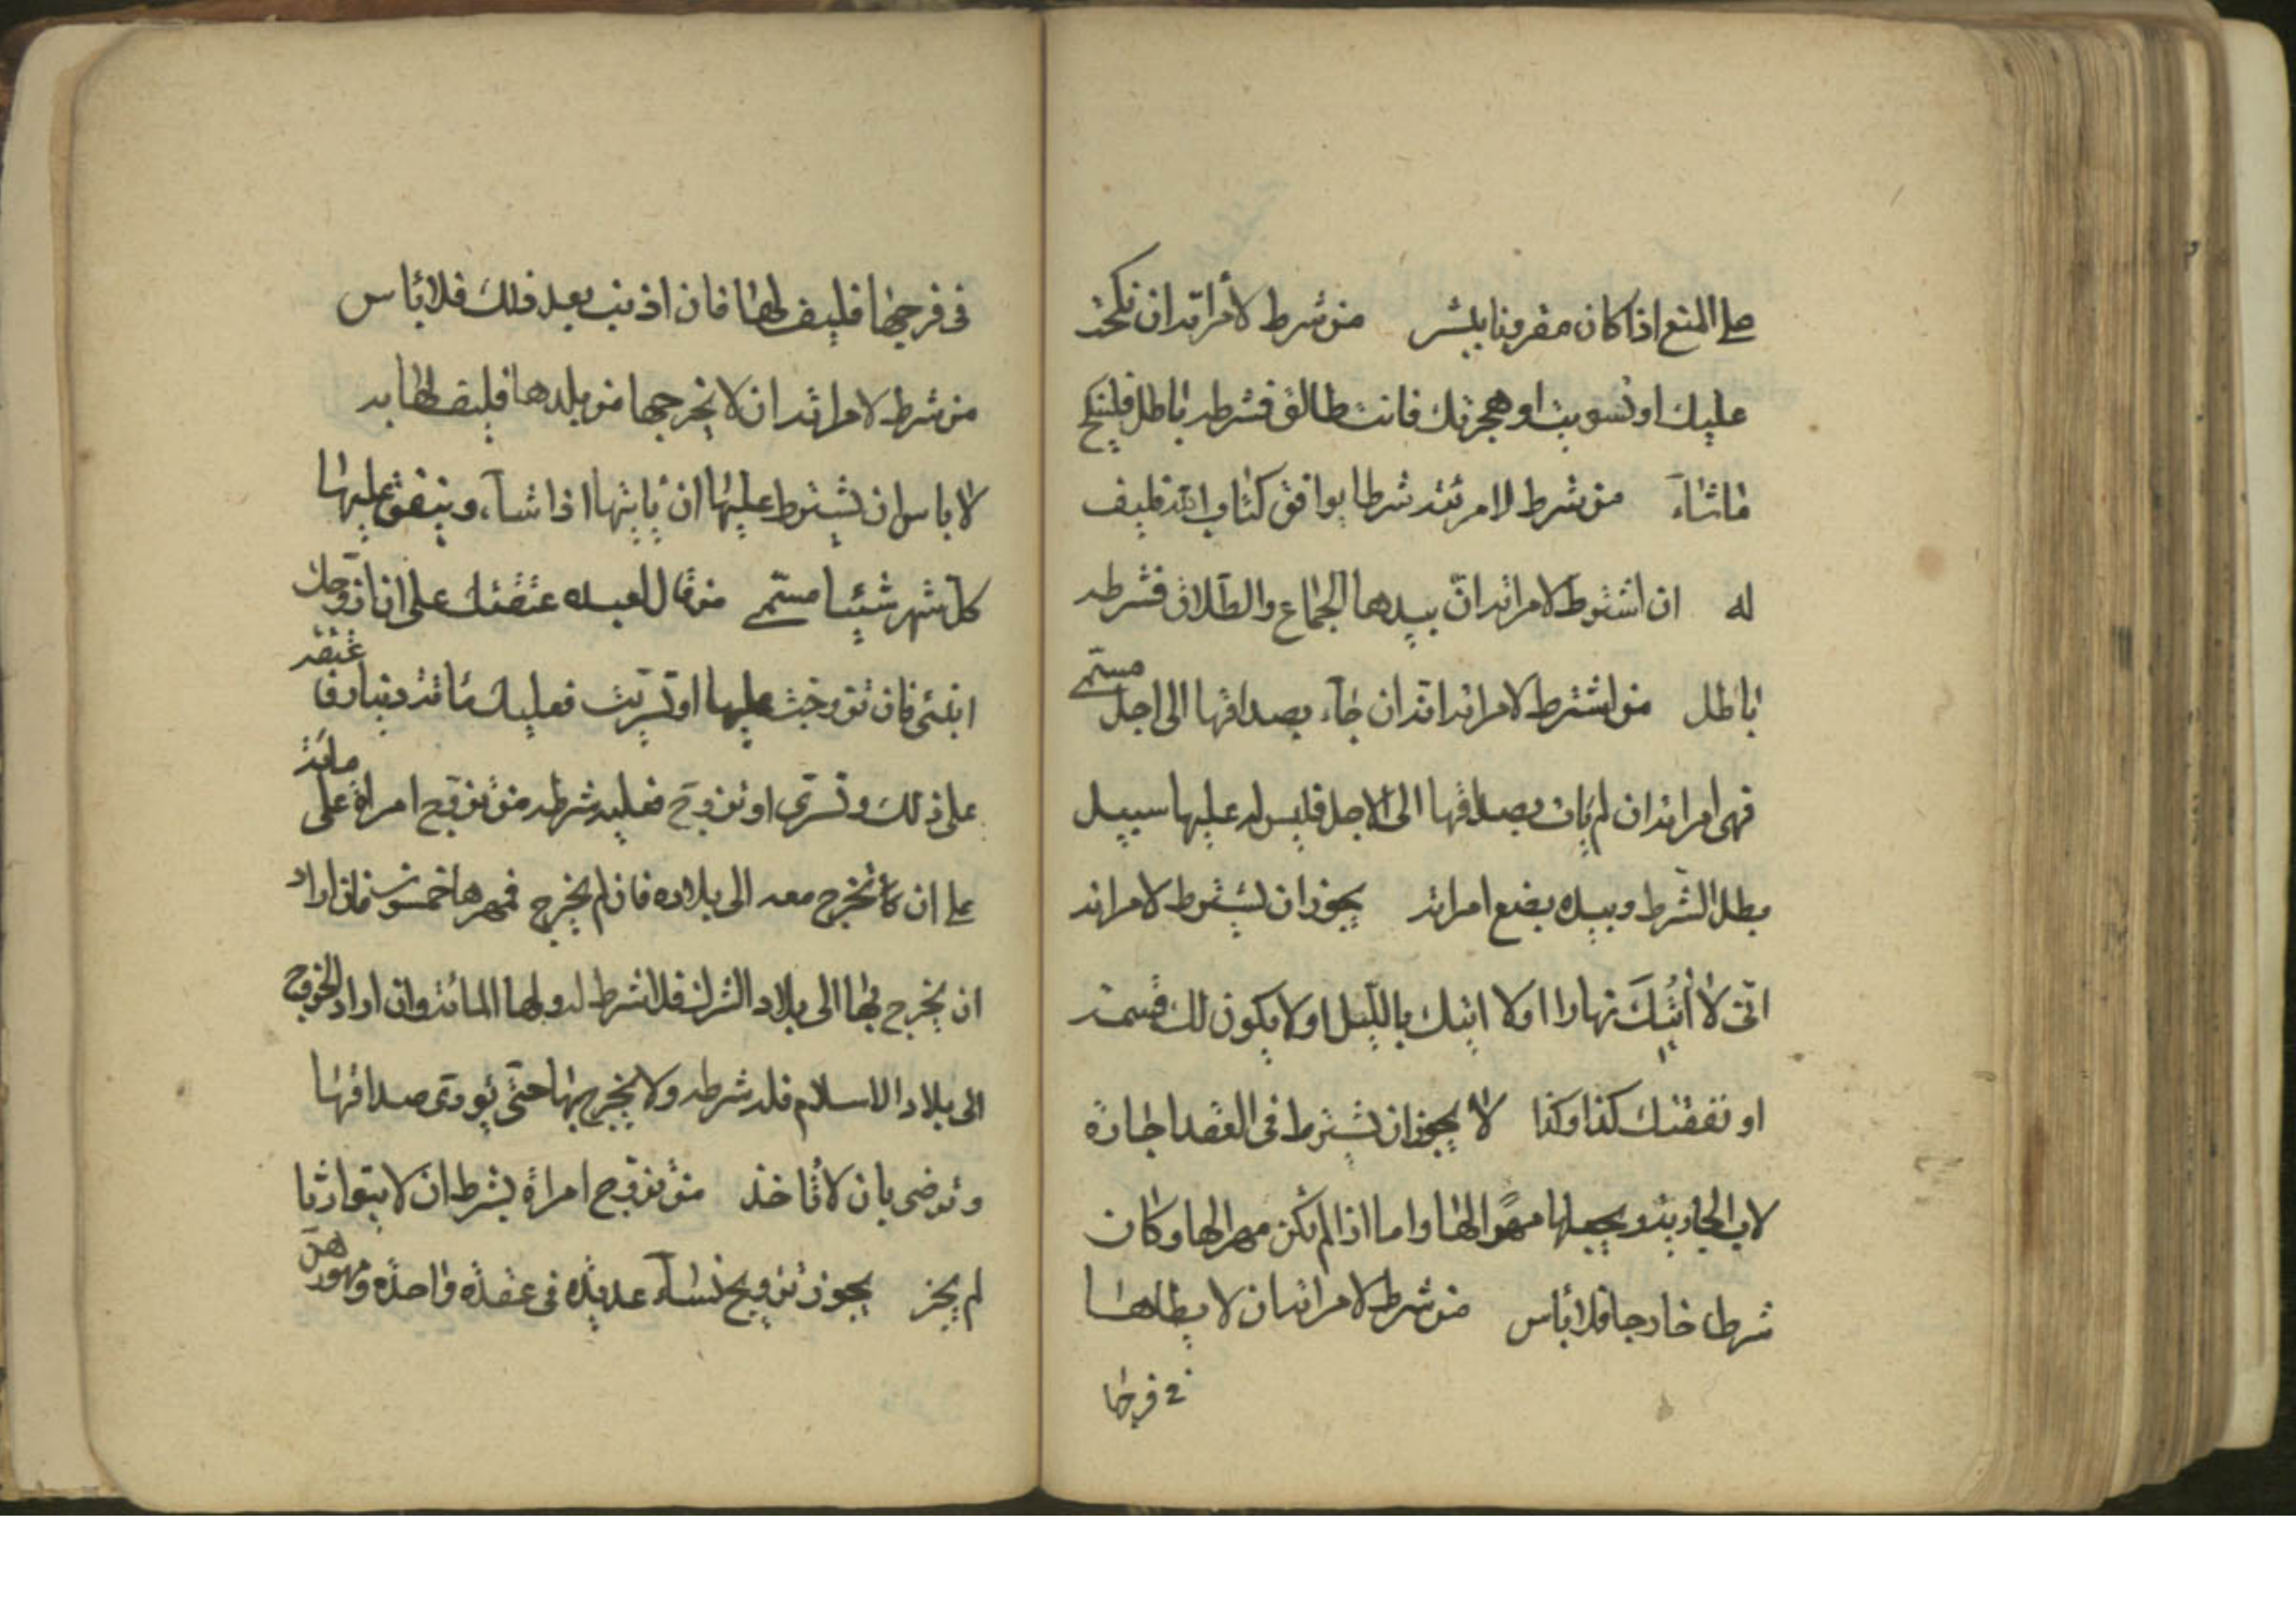 على المنع اذا كان مقرونا بشر من شرط لأمراته ان نكحت
عليك او تسريت او هجرتك فانت طالق فشرطه باطل فلينكح
ما شاء من شرط لامرئته شرطا يوافق كتاب الله فليف
له ان اشترط لامراته انّ بيدها الجماع والطّلاق فشرطه
باطل من اشترط لامراته انّه ان جاء بصداقها الى اجل مسمّى
فهى امراته ان لم يأت بصداقها الى الاجل فليس له عليها سبيل
بطل الشّرط وبيده بضع امراته يجوز ان يشترط لامراته
انّى لا أتيك نهارا او لا اتيك بالليل او لا يكون لك قسمة
او نفقتك كذا وكذا لا يجوز ان يشترط فى العقد اجارة
لاب الجارية ويجعلها مهرًا لها واما اذا لم تكن مهرا لها وكان
شرطا خارجا فلا بأس من شرط لامراته ان لا يطاها
فى فرجها
فى فرجها فليف لها فان اذنت بعد ذلك فلا بأس
من شرط لامراته ان لا يخرجها من بلدها فليف لها به
لا باس ان يشترط عليها ان يأيتها اذا شآء وينفق عليها
كلّ شهر شيئا مسمّى من قال لعبده عتقتك على ان ازوّجك
ابنتى فان تزوجت عليها او تسرّيت فعليك مائة دينار فا عتقه
على ذلك وتسرّى او تزوّج فعليه شرطه من تزوّج امراة على مائة
على ان تخرج معه الى بلاده فان لم يخرج فمهرها خمسون فان اراد
ان يخرج بها الى بلاد الشرك فلا شرط له ولها المائة وان اراد الخروج
الى بلاد الاسلام فله شرطه ولا يخرج بها حتّى يؤدى صداقها
وترضى بان لا تاخذ من تزوّج امراة بشرط ان لا يتوارثا
لم يجز يجوز تزويج نسآء عديدة فى عقدة واحدة ومهورهنّ